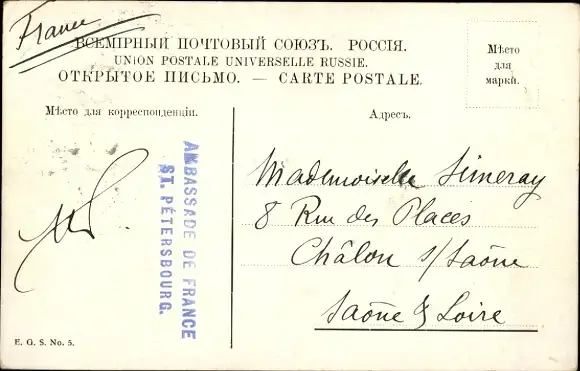 France
ВСЕМІРНЫЙ ПОЧТОВЫЙ СОЮЗЪ. РОССІЯ.
UNION POSTALE UNIVERSELLE RUSSIE.
ОТКРЫТОЕ ПИСЬМО. — CARTE POSTALE.
Мѣсто
для
марки.
Мѣсто для корреспонденціи.
Адресъ.
AMBASSADE DE FRANCE
ST. PÉTERSBOURG.
Mademoiselle Simeray
8 Rue des Places
Châlon s/Saône
Saône & Loire
E. G. S. No. 5.